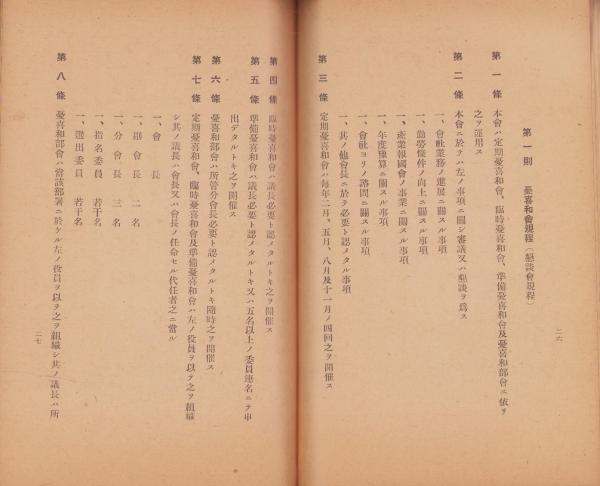 第一則　憂喜和會規程（懇談會規程）
第一條　本會ハ定期憂喜和會、臨時憂喜和會、準備憂喜和會及憂喜和部會ニ依リ
之ヲ運用ス
第二條　本會ニ於テハ左ノ事項ニ關シ審議又ハ懇談ヲ爲ス
一、會社業務ノ進展ニ關スル事項
一、勤勞條件ノ向上ニ關スル事項
一、產業報國會ノ事業ニ關スル事項
一、年度豫算ニ關スル事項
一、會社ヨリノ諮問ニ關スル事項
一、其ノ他會長ニ於テ必要ト認メタル事項
第三條　定期憂喜和會ハ每年二月、五月、八月及十一月ノ四回之ヲ開催ス
二六
第四條　臨時憂喜和會ハ議長必要ト認メタルトキ之ヲ開催ス
第五條　準備憂喜和會ハ議長必要ト認メタルトキ又ハ五名以上ノ委員連名ニテ申
出デタルトキ之ヲ開催ス
第六條　憂喜和部會ハ所管分會長必要ト認メタルトキ隨時之ヲ開催ス
第七條　定期憂喜和會、臨時憂喜和會及準備憂喜和會ハ左ノ役員ヲ以テ之ヲ組織
シ其ノ議長ハ會長又ハ會長ノ任命セル代任者之ニ當ル
一、會長
一、副會長　二名
一、分會長　三名
一、指名委員　若干名
一、選出委員　若干名
第八條　憂喜和部會ハ當該部署ニ於ケル左ノ役員ヲ以テ之ヲ組織シ其ノ議長ハ所
二七